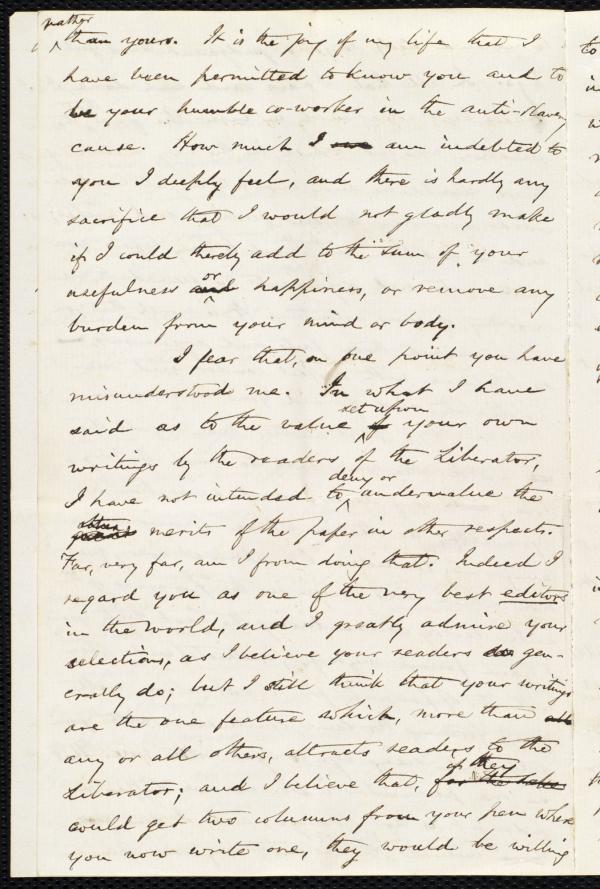 rather
than yours. It is the joy of my life that I
have been permitted to know you and to
be your humble co-worker in the anti-slavery
cause. How much I am indebted to
you I deeply feel, and there is hardly any
sacrifice that I would not gladly make
if I could thereby add to the sum of your
or
usefulness and happiness, or remove any
burden from your mind or body.
I fear that, on one point you have
misunderstood me. In what I have
set upon
said as to the value of your own
writings by the readers of the Liberator,
deny or
I have not intended to undervalue the
other
merits of the paper in other respects.
Far, very far, am I from doing that. Indeed I
regard you as one of the very best editors
in the world, and I greatly admire your
selections, as I believe your readers do gen-
erally do; but I still think that your writings
are the one feature which, more than all
any or all others, attracts readers to the
if they
Liberator; and I believe that, for the sake
could get two columns from your pen where
you now write one, they would be willing
to